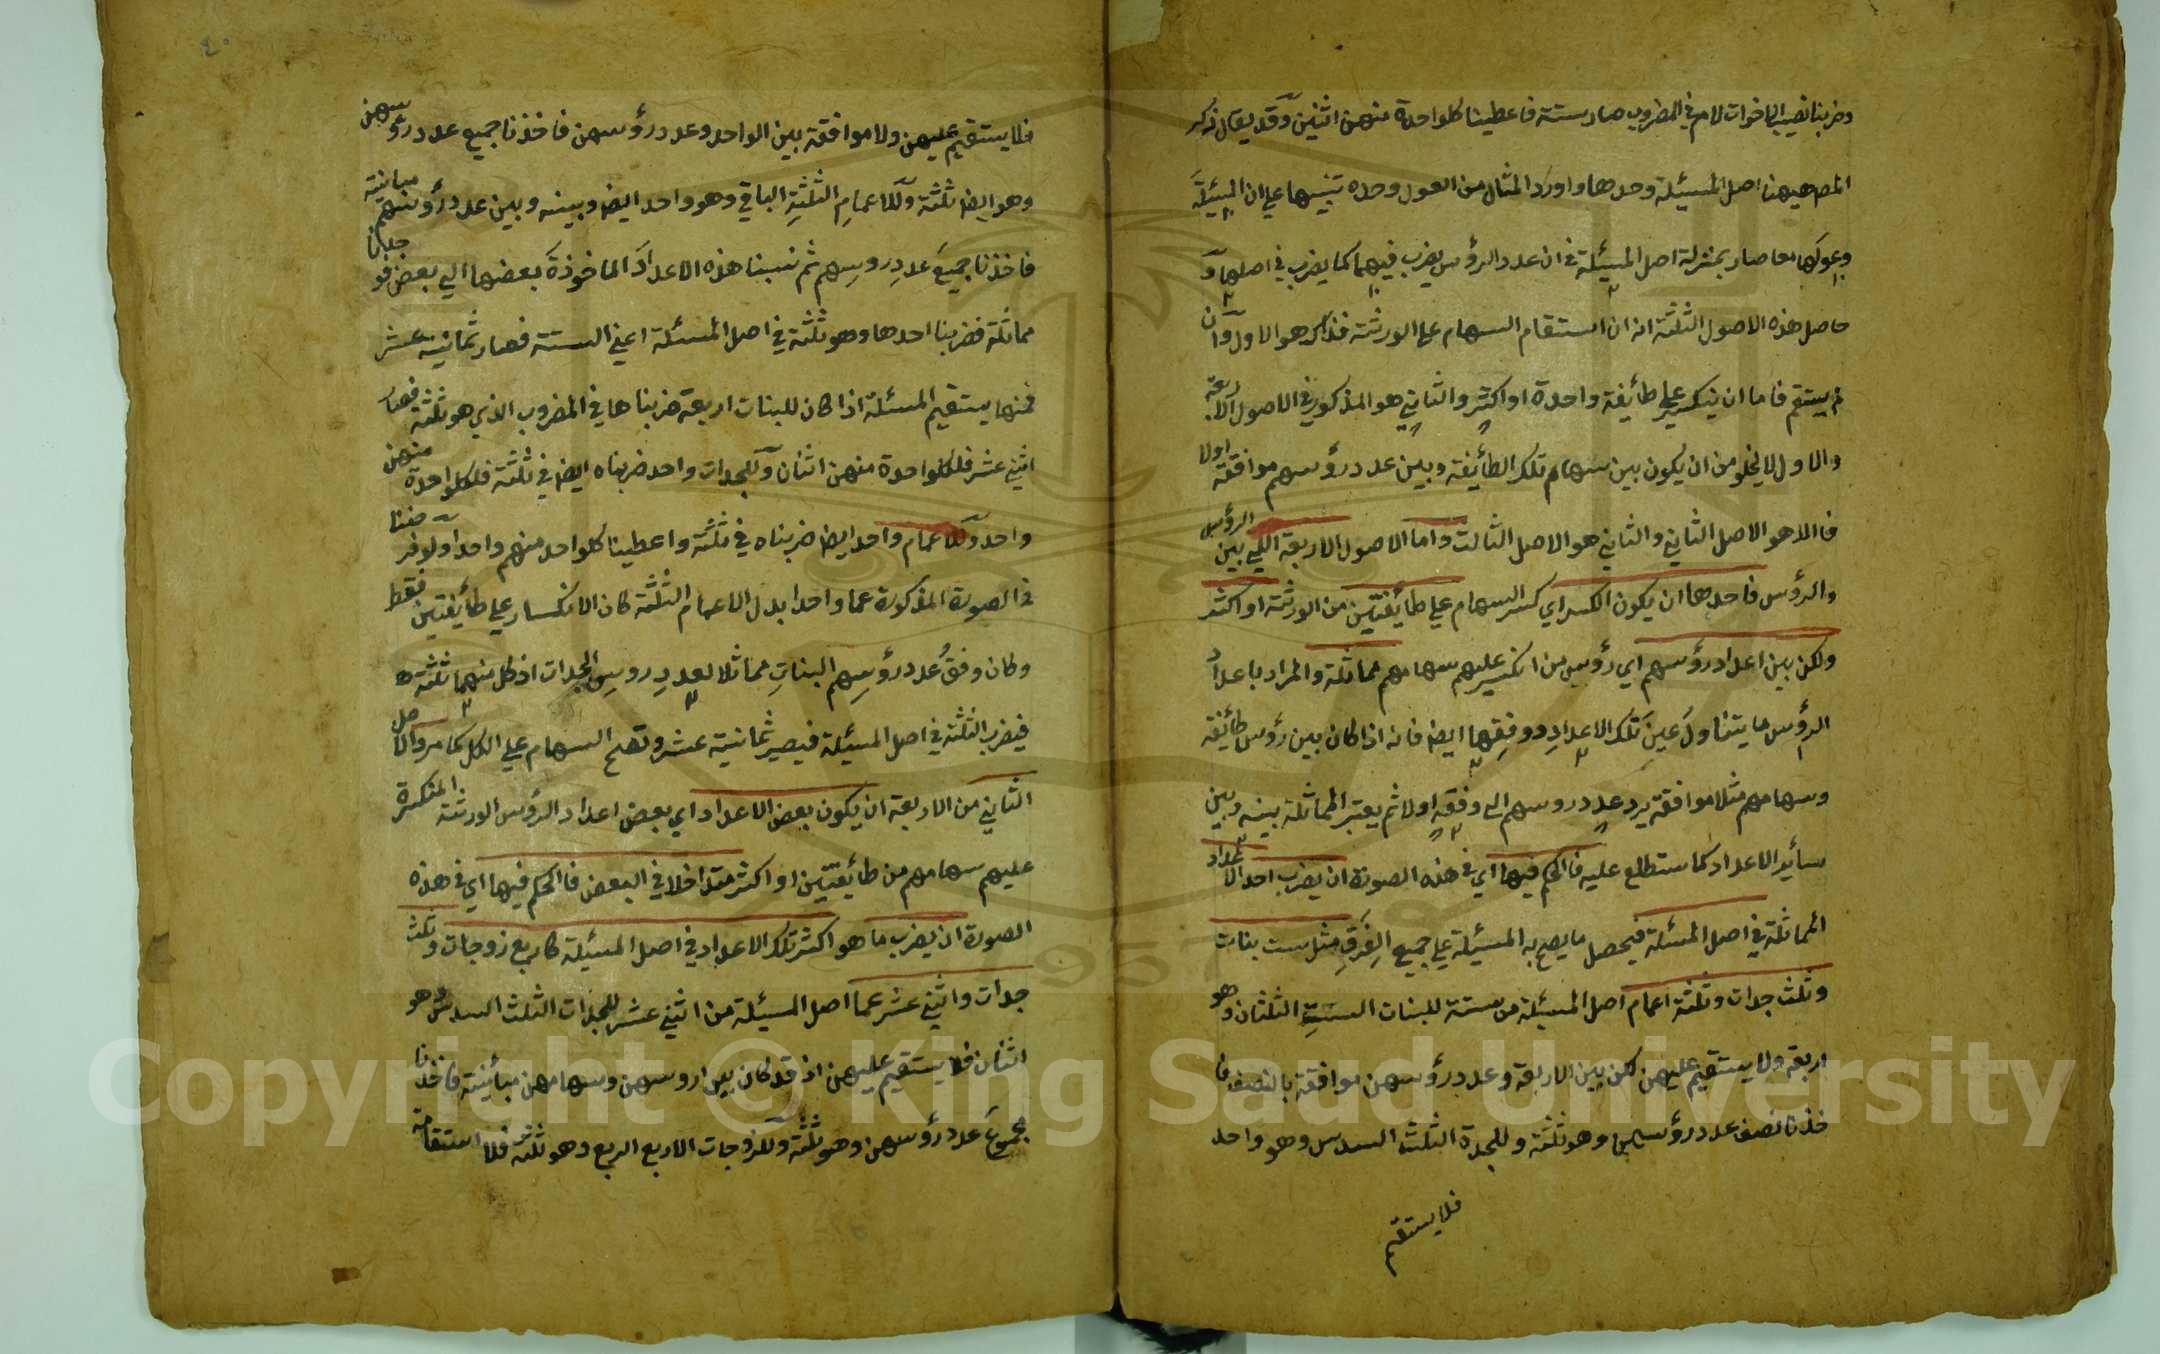 وضربنا نصيب الاخوات لام في المضروب صار ستة فاعطينا كلواحدة منهن اثنين وقد يقال ذكر
المص ههنا اصل المسئلة وحدها واورد المثال من العول وحده تنبيها على ان المسئلة
وعولها معا صار بمنزلة اصل المسئلة في ان عدد الرؤس يضرب فيهما كما يضرب في اصلها و
حاصل هذه الاصول الثلثة انه ان استقام السهام على الورثة فذاك هو الاول وان
لم يستقم فاما ان ينكسر على طائفة واحدة او اكثر والثاني هو المذكور في الاصول الاربعة
والاول لا يخلو من ان يكون بين سهام تلك الطائفة وبين عدد رؤسهم موافقة اولا
فالاول هو الاصل الثاني والثاني هو الاصل الثالث واما الاصول الاربعة التي بين الرؤس
والرؤس فاحدها ان يكون الكسر اي كسر السهام على طائفتين من الورثة او اكثر
ولكن بين اعداد رؤسهم اي رؤس من انكسر عليهم سهامهم مماثلة والمراد باعداد
الرؤس ما يتناول عين تلك الاعداد ووفقها ايضا فانه اذا كان بين رؤس طائفة
وسهامهم مثلا موافقة يرد عدد روسهم الى وفقه اولا ثم يعتبر المماثلة بينه وبين
سائر الاعداد كما ستطلع عليه فالحكم فيها اي في هذه الصورة ان يضرب احد الاعداد
المماثلة في اصل المسئلة فيحصل ما يصح به المسئلة على جميع الفرق مثل ست بنات
وثلث جدات وثلثة اعمام اصل المسئلة من ستة للبنات الستة الثلثان وهو
اربعة ولا يستقيم عليهن لكن بين الاربعة وعدد رؤسهن موافقة بالنصف فا
خذنا نصف عدد رؤسهن وهو ثلثة وللجدة الثلث السدس وهو واحد
فلا يستقيم
٤٠
فلا يستقيم عليهن ولا موافقة بين الواحد وعدد رؤسهن فاخذنا جميع عدد رؤسهن
وهو ايضا ثلثة وللاعمام الثلثة الباقي وهو واحد ايضا وبينه وبين عدد رؤسهم مباينة
فاخذنا جميع عدد روسهم ثم نسبنا هذه الاعداد الماخوذة بعضها الى بعض فوجدناها
مماثلة فضربنا احدها وهو ثلثة في اصل المسئلة اعني الستة فصار ثمانية عشر
فمنها يستقيم المسئلة اذا كان للبنات اربعة ضربناها في المضروب الذي هو ثلثة فصار
اثني عشر فلكلواحدة منهن اثنان وللجدات واحد ضربناه ايضا في ثلثة فلكلواحدة منهن
واحد وللاعمام واحد ايضا ضربناه في ثلثة واعطينا كلواحد منهم واحدا ولو فرضنا
في الصورة المذكورة عما واحدا بدل الاعمام الثلثة كان الانكسار على طائفتين فقط
وكان وفق عدد رؤسهم البنات مماثلا لعدد روس الجدات اذ كل منهما ثلثة
فيضرب الثلثة في اصل المسئلة فيصير ثمانية عشر وتصح السهام على الكل كما مر والاصل
الثاني من الاربعة ان يكون بعض الاعداد اي بعض اعداد الرؤس الورثة المنكسرة
عليهم سهامهم من طائفتين او اكثر متداخلا في البعض فالحكم فيها اي في هذه
الصورة ان يضرب ما هو اكثر تلك الاعداد في اصل المسئلة كاربع زوجات وثلث
جدات واثني عشر عما اصل المسئلة من اثني عشر للجدات الثلث السدس وهو
اثنان فلا يستقيم عليهن اذ قد كان بين روسهن وسهامهن مبائنة فاخذنا
مجموع عدد رؤسهن وهو ثلثة وللزوجات الاربع الربع وهو ثلثة فلا استقامة
Copyright © King Saud University
1957